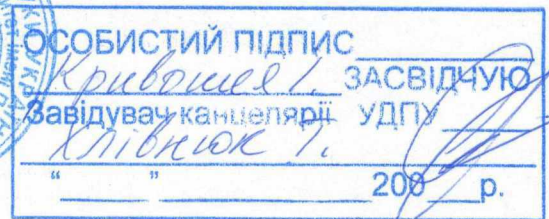 ОСОБИСТИЙ ПІДПИС
Кривошея І. ЗАСВІДЧУЮ
Завідувач канцелярії УДПУ
Хлівнюк Т.
“ ” 200 р.